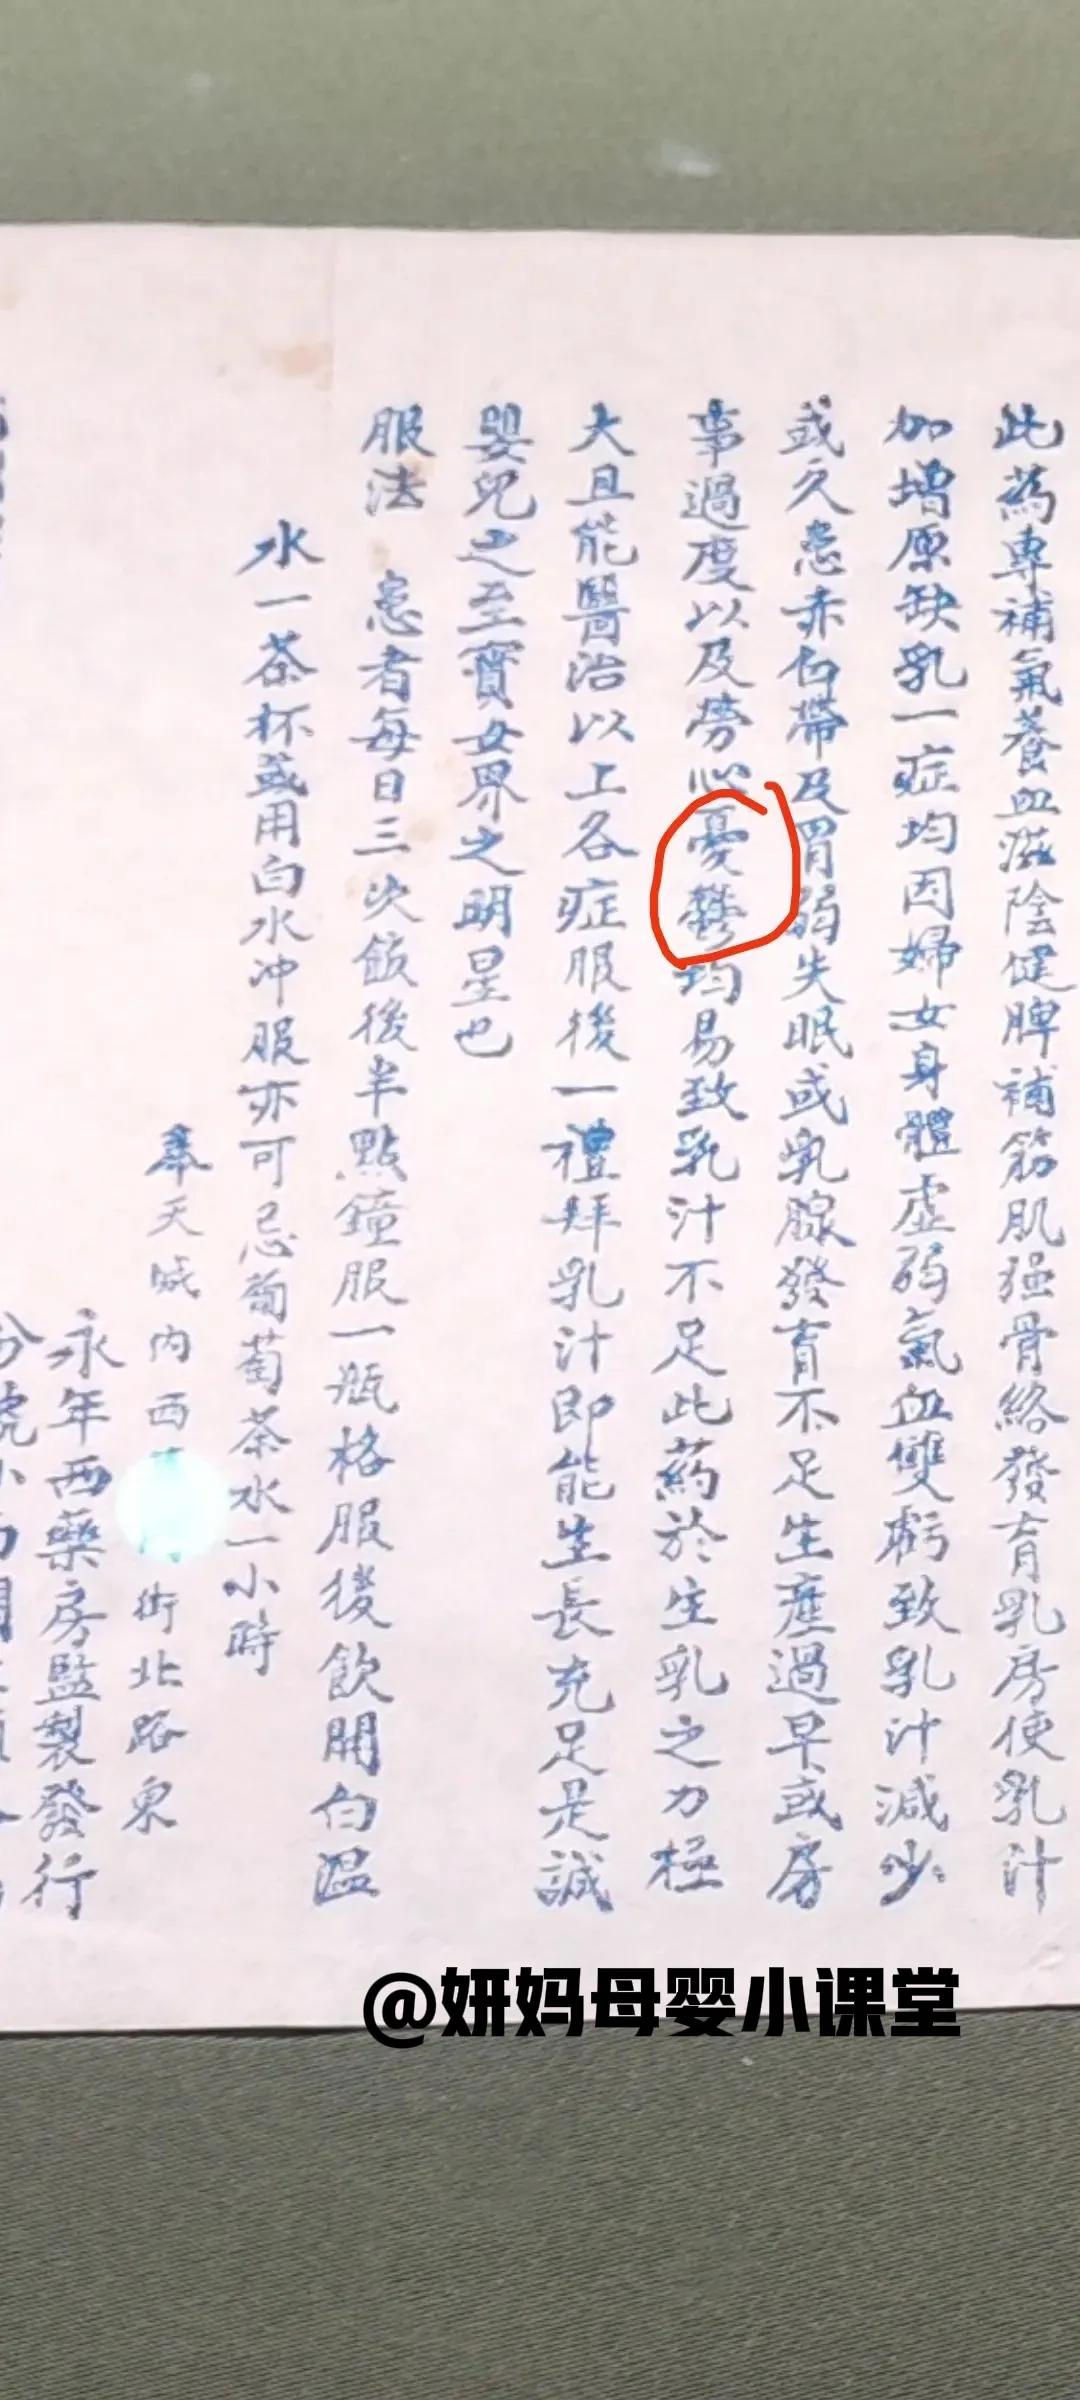 此藥專補氣養血滋陰健脾補筋肌强骨絡發育乳房使乳汁
加增原缺乳一症均因婦女身體虛弱氣血雙虧致乳汁減少
或久患赤白帶及胃弱失眠或乳腺發育不足生產過早或房
事過度以及勞心憂鬱均易致乳汁不足此药於生乳之力極
大且能醫治以上各症服後一禮拜乳汁即能生長充足是誠
嬰兒之至寳女界之明星也
服法 患者每日三次飯後半點鐘服一瓶格服後飲開白温
水一茶杯或用白水冲服亦可忌葡萄茶水一小時
奉天城内西 街北路東
永年西藥房監製發行
分號小
@妍妈母婴小课堂